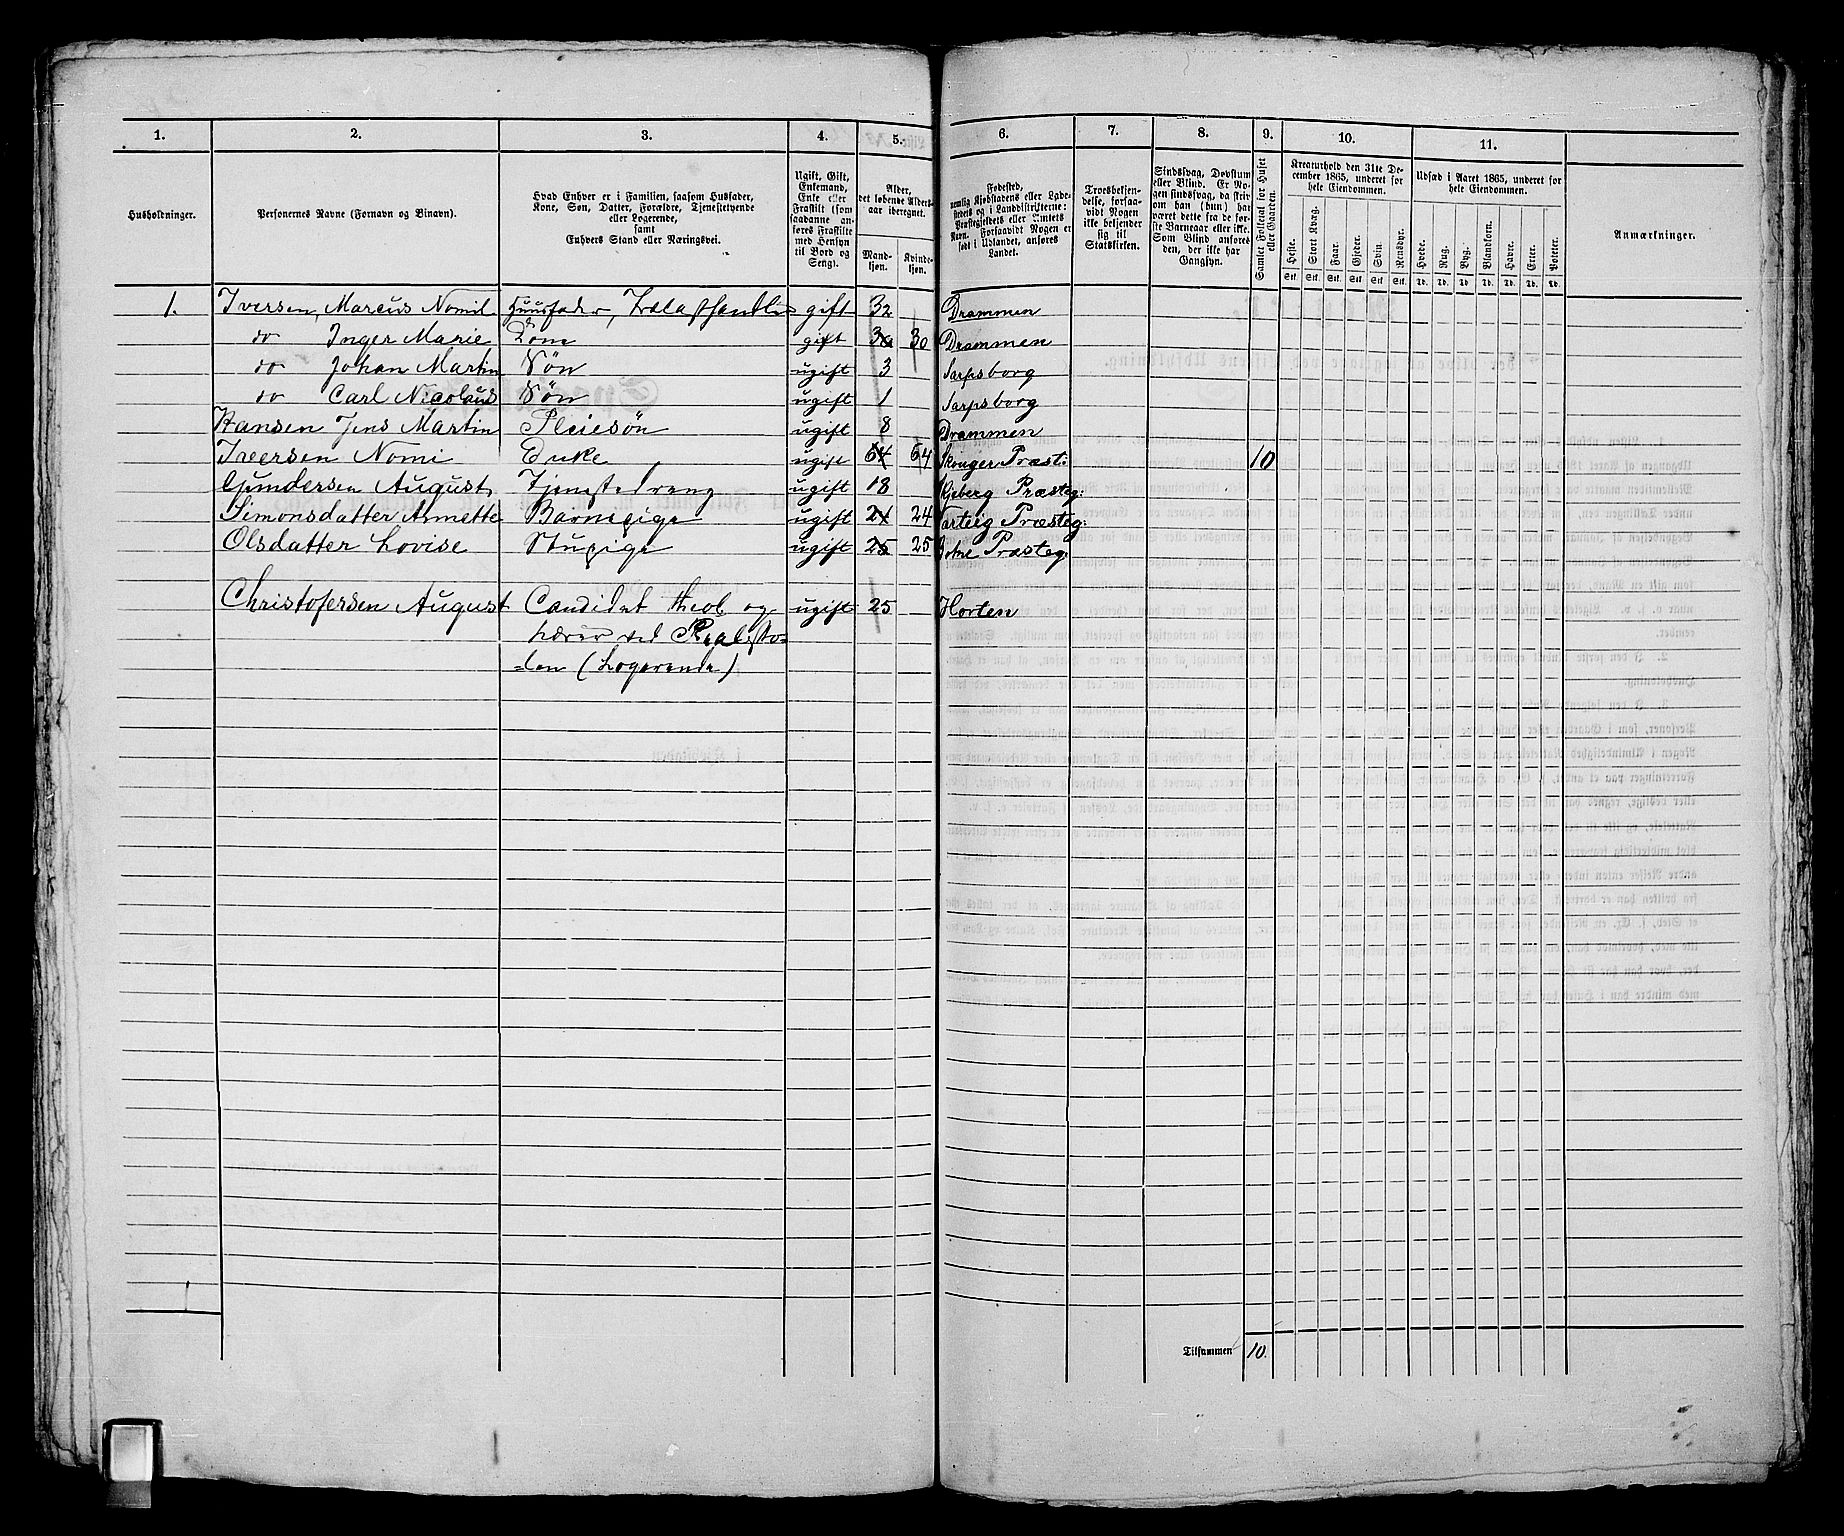 1. 2. 3. 4. 5. 6. 7. 8. 9. 10. 11.
Husholdninger.
Personernes Navne (Fornavn og Binavn).
Hvad Enhver er i Familien, saasom Husfader,
Kone, Søn, Datter, Forældre, Tjenestetyende
eller Logerende,
samt
Enhvers Stand eller Næringsvei.
Ugift, Gift,
Enkemand,
Enke eller
Fraskilt (som
saadanne an-
føres Fraskilte
med Hensyn
til Bord og
Seng).
Alder,
det løbende Alders-
aar iberegnet.
Mand-
kjøn.
Kvinde-
kjøn.
Fødested,
nemlig Kjøbstadens eller Lade-
stedets og i Landdistrikterne:
Præstegjeldets eller Amtets
Navn. Forsaavidt Nogen er
født i Udlandet, anføres
Landet.
Troesbekjen-
delse, forsaa-
vidt Nogen
ikke bekjender
sig til
Statskirken.
Sindssvag, Døvstum
eller Blind. Er No-
gen sindssvag, da skriv
om han (hun) har
været dette fra de før-
ste Barneaar eller ikke.
Som Blind anføres
den, der ikke har
Gangsyn.
Samlet Folketal for Huset
eller Gaarden.
Kreaturhold den 31te De-
cember 1865, underet for
hele Eiendommen.
Heste. Stort Kvæg. Faar. Gjeder. Svin. Rensdyr.
Stk. Stk. Stk. Stk. Stk. Stk.
Udsæd i Aaret 1865, underet for
hele Eiendommen.
Hvede. Rug. Byg. Blandkorn. Havre. Erter. Poteter.
Td. Td. Td. Td. Td. Td. Td.
Anmærkninger.
1. Iversen, Marcus Nomil Huusfader, gift 32 Drammen
do Inger Marie Kone gift 30 30 Drammen
do Johan Martin Søn ugift 3 Sarpsborg
do Carl Nicolaus Søn ugift 1 Sarpsborg
Hansen Jens Martin Pleiesøn ugift 8 Drammen
Iversen Nomi Enke ugift 64 64 Skouger Præst: 10
Gundersen August Tjenestedreng ugift 18 Skjeberg Præsteg:
Simonsdatter Annette Barnepige ugift 24 24 Varteig Præsteg:
Olsdatter Lovise Stupige ugift 25 25 Præsteg:
Christofersen August Candidat theol og ugift 25 Horten
Lærer ved Realsko-
=len (Logerende)
Tilsammen 10.